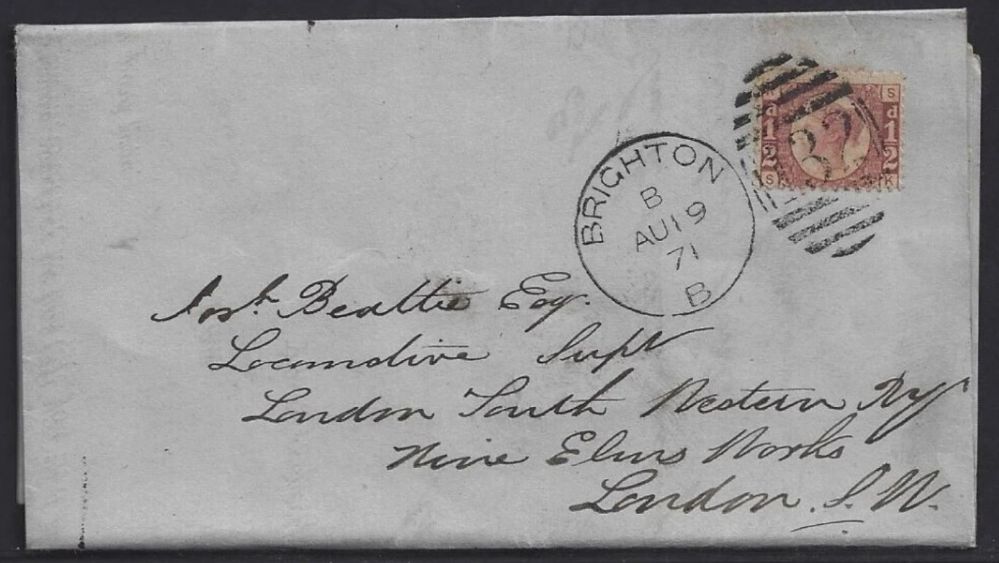 BRIGHTON
B
AU 19
71
B
K S
d 1/2 d 1/2
S K
Josh. Beattie Esq.
Locomotive Supt
London South Western Ry
Nine Elms Works
London. S.W.